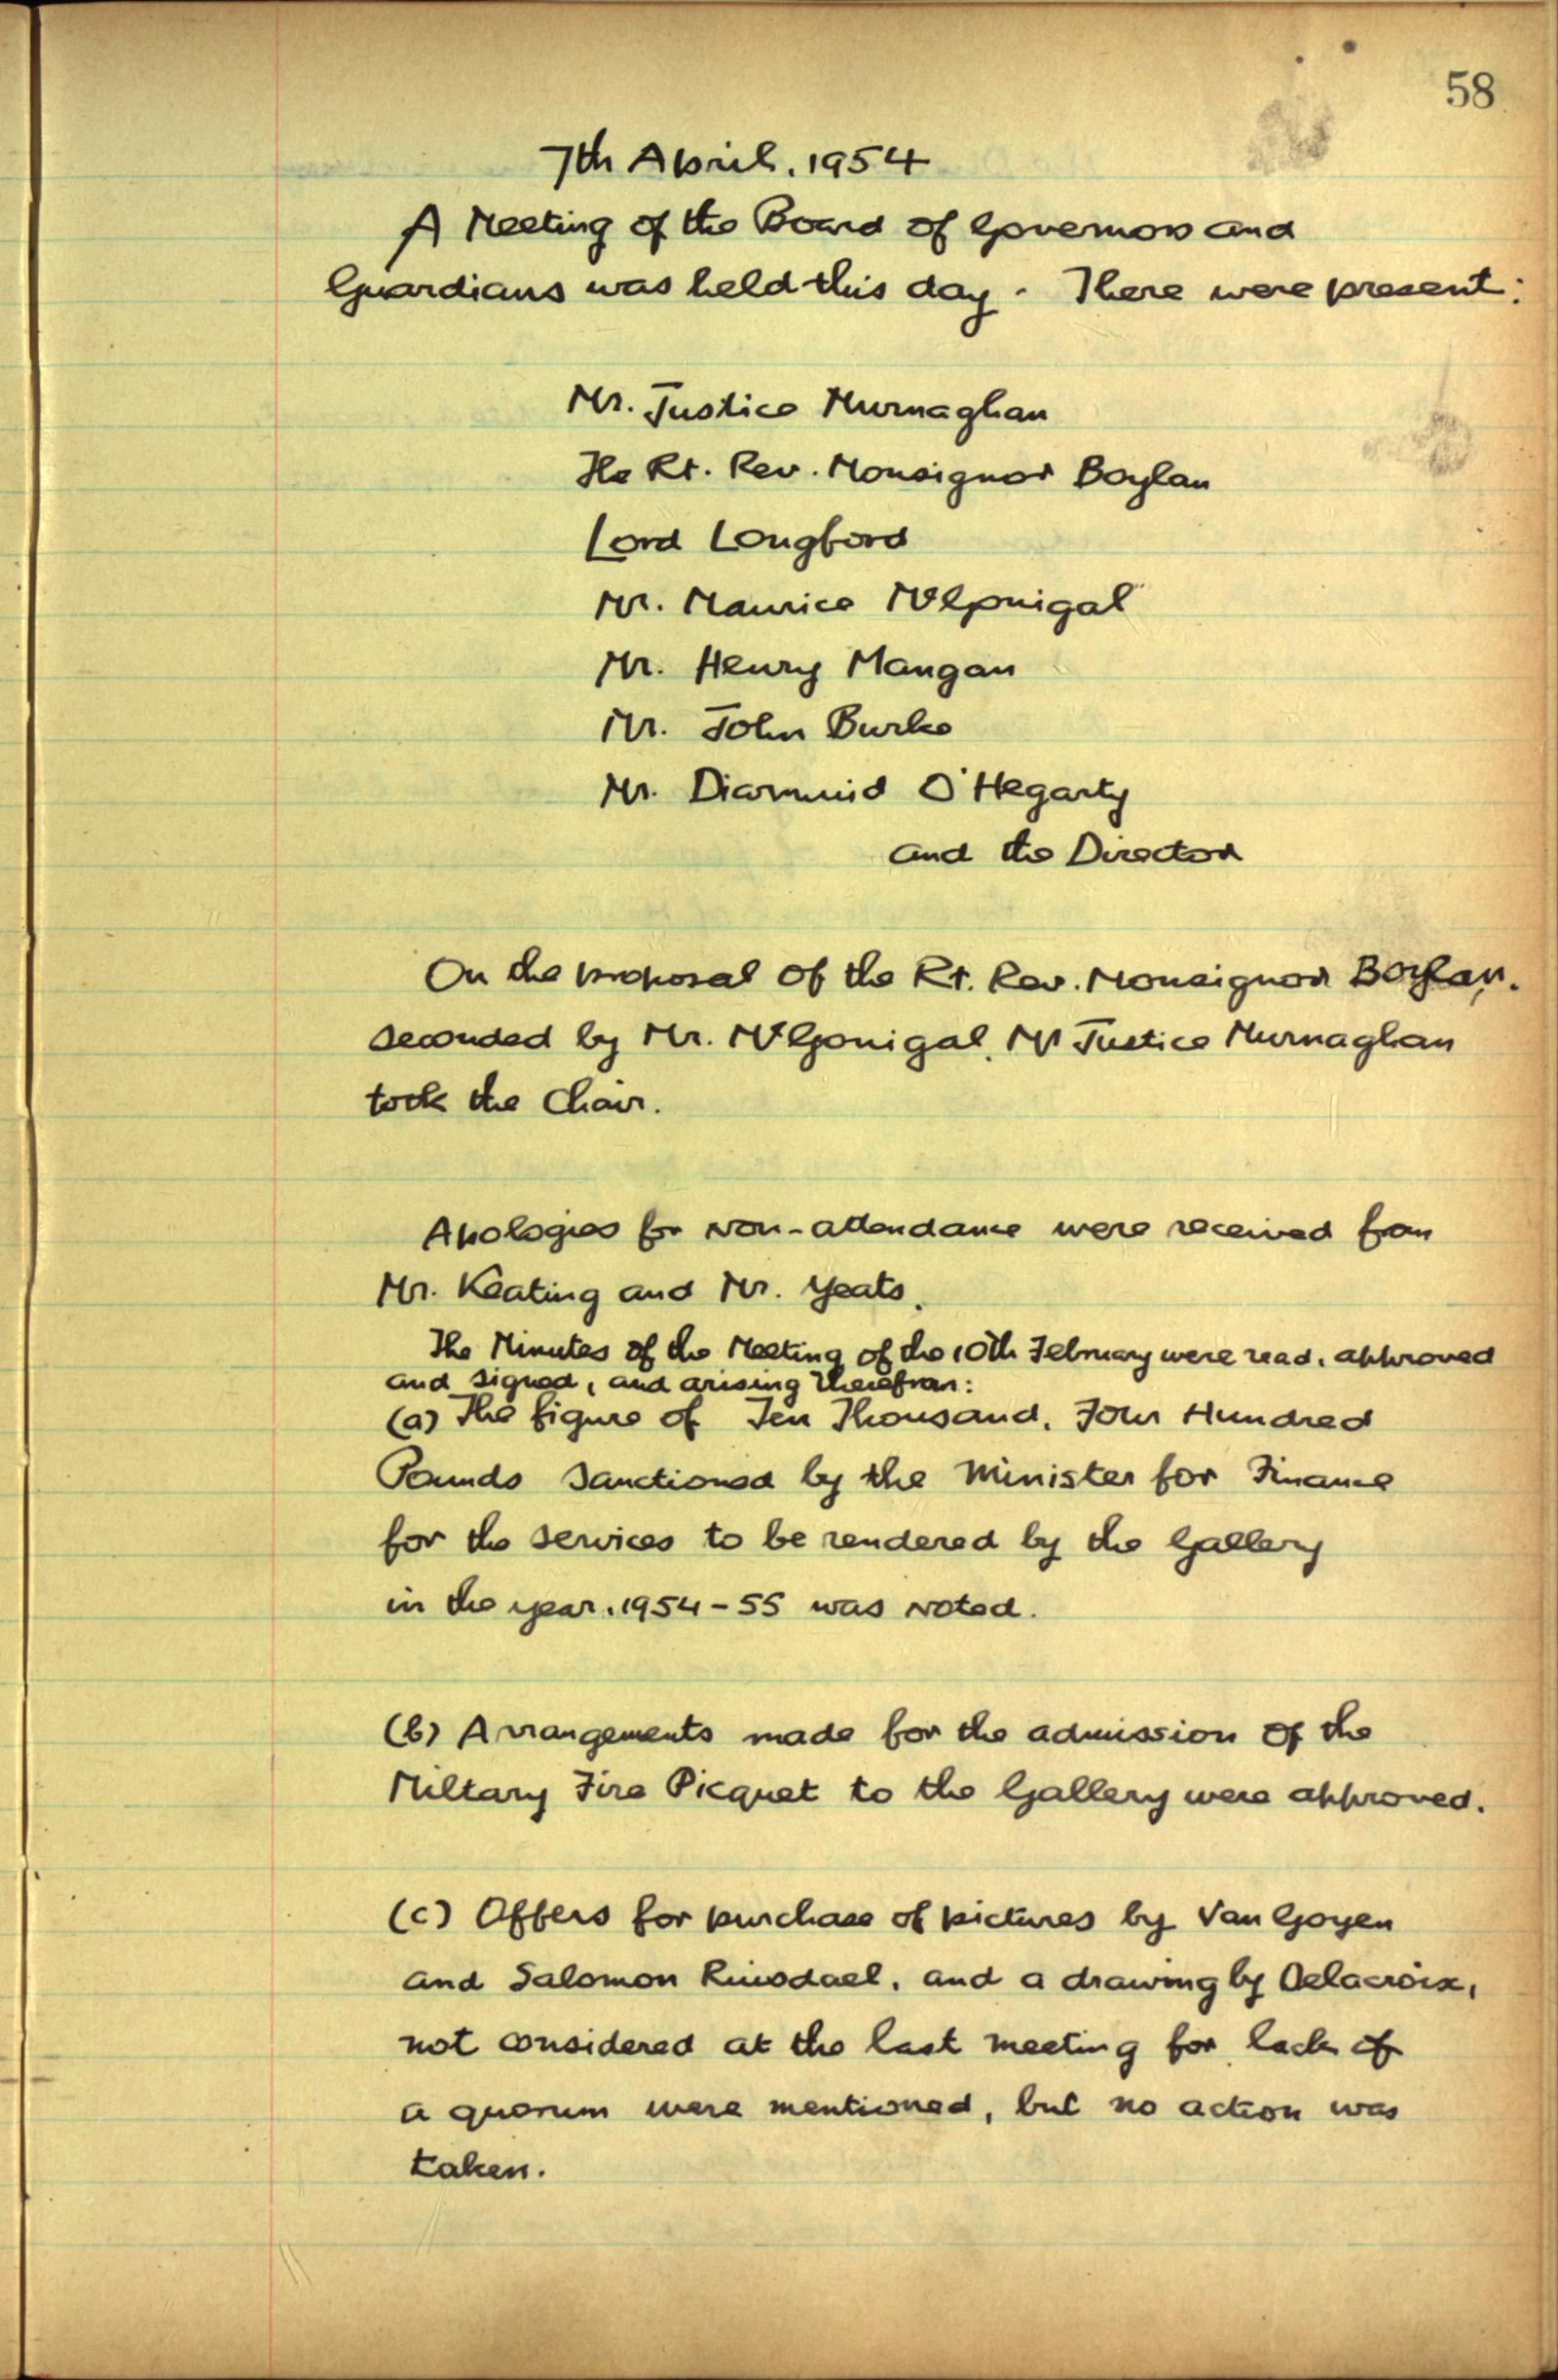 58
7th April, 1954
A Meeting of the Board of Governors and
Guardians was held this day. There were present:
Mr. Justice Murnaghan
The Rt. Rev. Monsignor Boylan
Lord Longford
Mr. Maurice McGonigal
Mr. Henry Mangan
Mr. John Burke
Mr. Diarmuid O'Hegarty
and the Director
On the proposal of the Rt. Rev. Monsignor Boylan,
seconded by Mr. McGonigal, Mr Justice Murnaghan
took the Chair.
Apologies for non-attendance were received from
Mr. Keating and Mr. Yeats.
The Minutes of the Meeting of the 10th February were read, approved
and signed, and arising therefrom:
(a) The figure of Ten Thousand, Four Hundred
Pounds sanctioned by the Minister for Finance
for the services to be rendered by the Gallery
in the year, 1954-55 was noted.
(b) Arrangements made for the admission of the
Miltary Fire Picquet to the Gallery were approved.
(c) Offers for purchase of pictures by Van Goyen
and Salomon Ruisdael, and a drawing by Delacroix,
not considered at the last meeting for lack of
a quorum were mentioned, but no action was
taken.